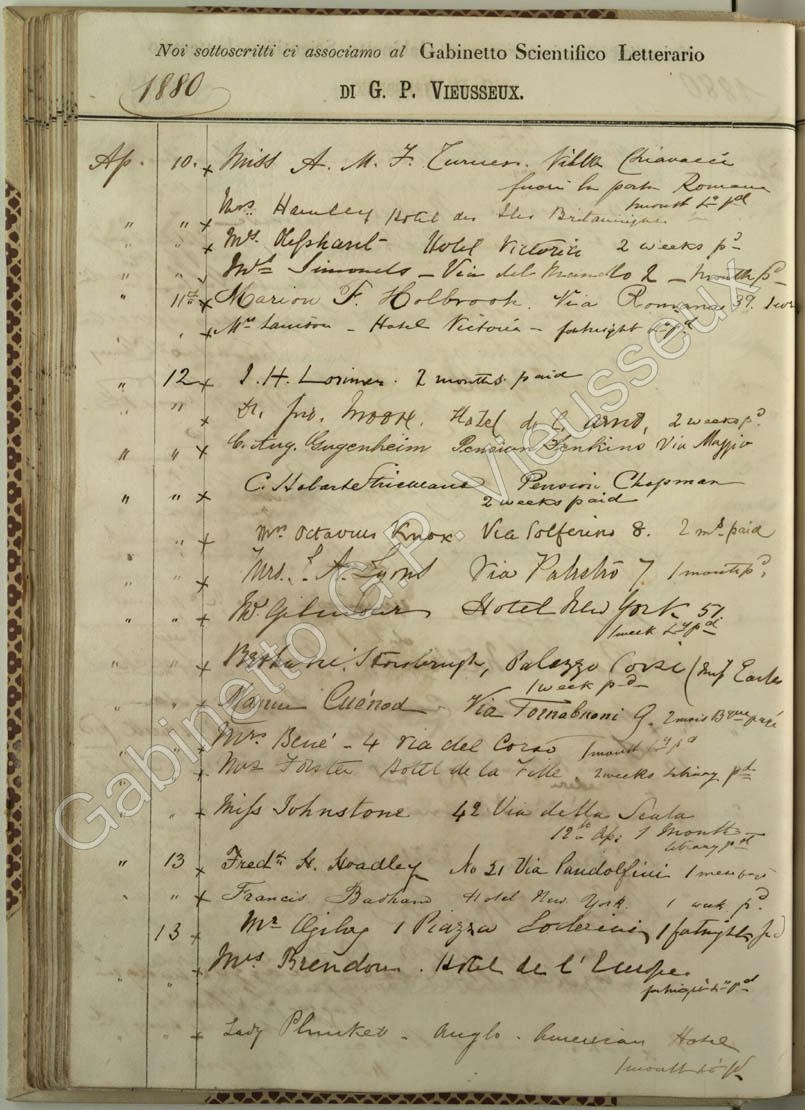 Noi sottoscritti ci associamo al Gabinetto Scientifico Letterario
1880
DI G. P. VIEUSSEUX.
Ap. 10. x Miss A. M. F. Turner. Villa Chiavacci
fuori la porta Romana
" " x Mrs. Hamley Hotel des Iles Britanniques 1 month Ly pd
" " x Mrs Oliphant Hotel Victoria 2 weeks pd
" " Simonds - Via del Mandorlo 2 - month pd
" 11th x Marion F. Holbrook. Via Romana 37.
" x Hotel Victoria - fortnight Ly pd
" 12 x J. H. Lorimer. 2 months paid
" " x Dr. Jno. Moore. Hotel de l'Arno, 2 weeks pd.
" " x C. Aug. Gugenheim Pension Jenkins Via Maggio
" " x C. Hobart Pension Chapman
2 weeks paid
" x Mrs Octavius Knox Via Solferino 8. 2 ms paid
" " x Mrs. A. Lyons Via Palestro 7 1 month pd.
" " x Mr Gilmour Hotel New York 57
1 week Ly pd
" " x Palazzo Corsi
1 week pd
" " x Cuénod - Via Tornabuoni 9. 2 mois payé
" x Mrs Bené - 4 Via del Corso 1 month Ly pd
" " x Mrs Forster Hotel de la Ville. 2 weeks Library pd
" " x Miss Johnstone 42 Via della Scala
12th Ap: 1 Month
Library pd
" 13 x Fredk H. Hoadley No 21 Via Pandolfini
" " x Francis Badham Hotel New York. 1 week pd.
13 x Mr Ogilvy 1 Piazza Soderini 1 fortnight pd
" " x Mrs Brendon. Hotel de l'Europe
fortnight Ly pd
" " x Lady Plunkett - Anglo-American Hotel
1 month
Gabinetto G.P. Vieusseux